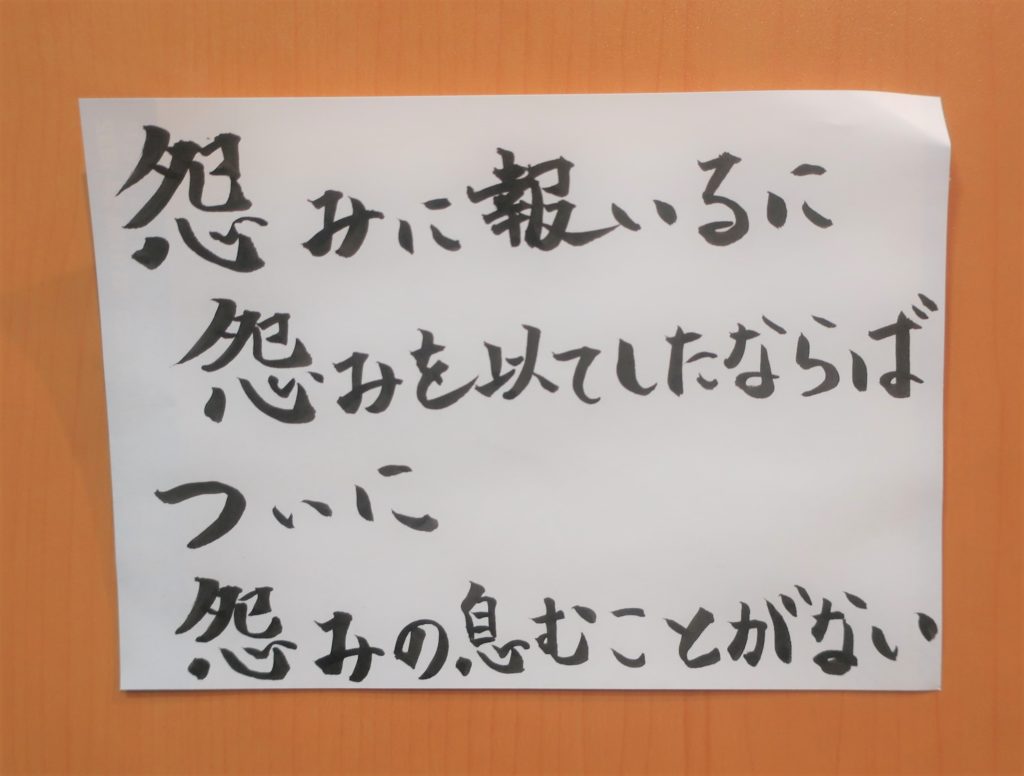 怨みに報いるに
怨みを以てしたならば
ついに
怨みの息むことがない